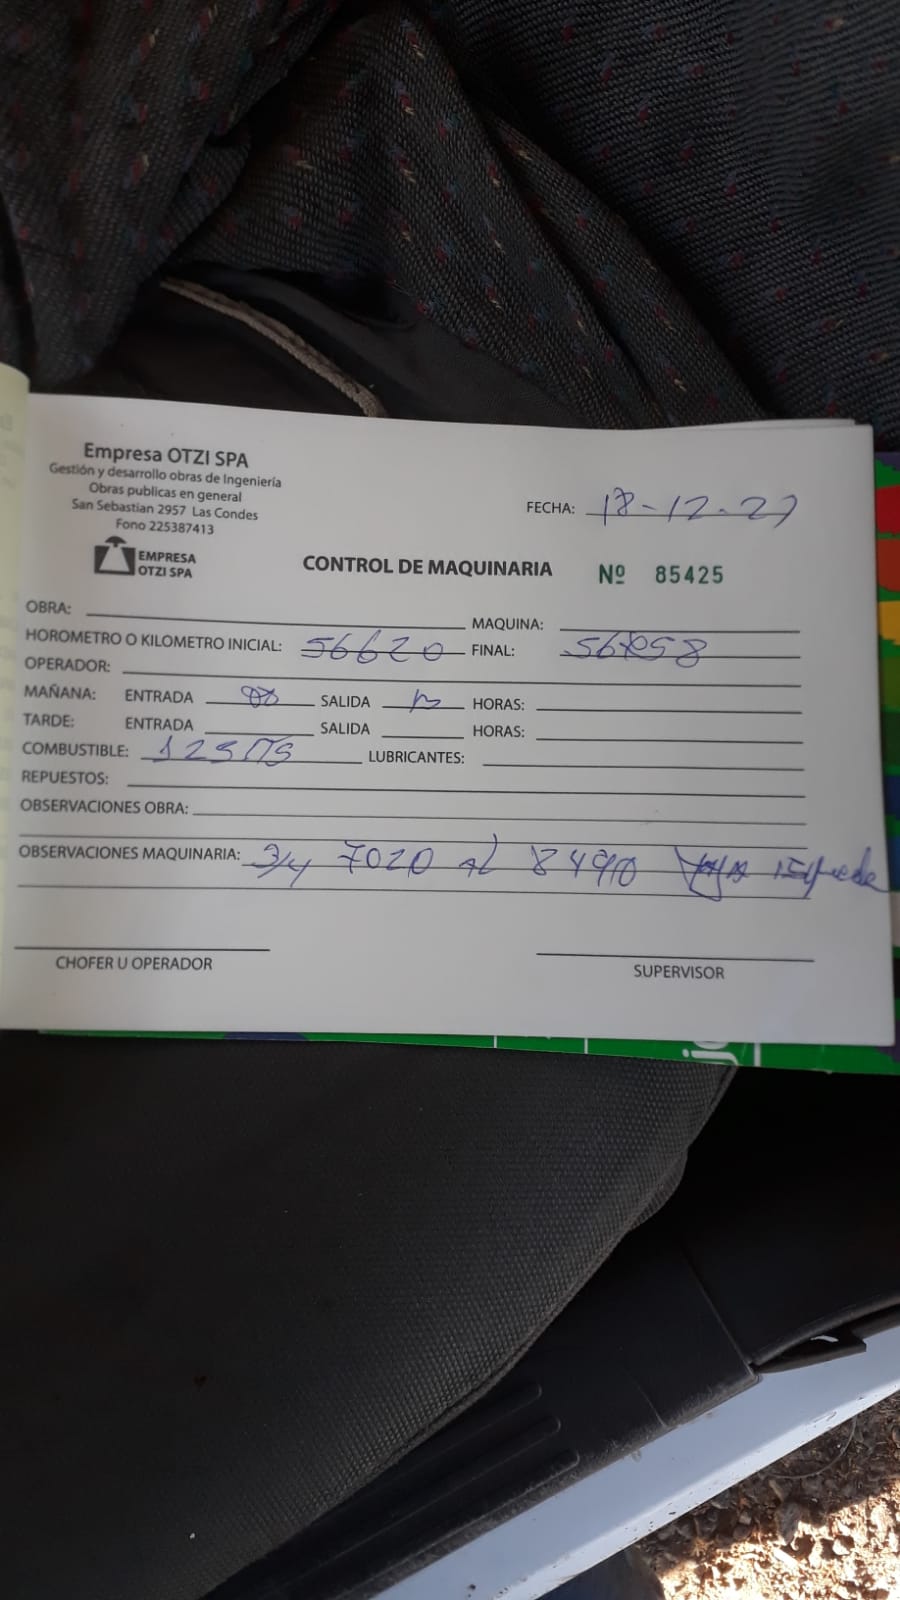 Empresa OTZI SPA
Gestión y desarrollo obras de Ingeniería
Obras publicas en general
San Sebastian 2957 Las Condes
Fono 225387413
EMPRESA
OTZI SPA
FECHA: 18-12-27
CONTROL DE MAQUINARIA Nº 85425
OBRA: MAQUINA:
HOROMETRO O KILOMETRO INICIAL: 56620 FINAL:
OPERADOR:
MAÑANA: ENTRADA SALIDA HORAS:
TARDE: ENTRADA SALIDA HORAS:
COMBUSTIBLE: LUBRICANTES:
REPUESTOS:
OBSERVACIONES OBRA:
OBSERVACIONES MAQUINARIA: 3/4 7020 AL 8490
CHOFER U OPERADOR SUPERVISOR